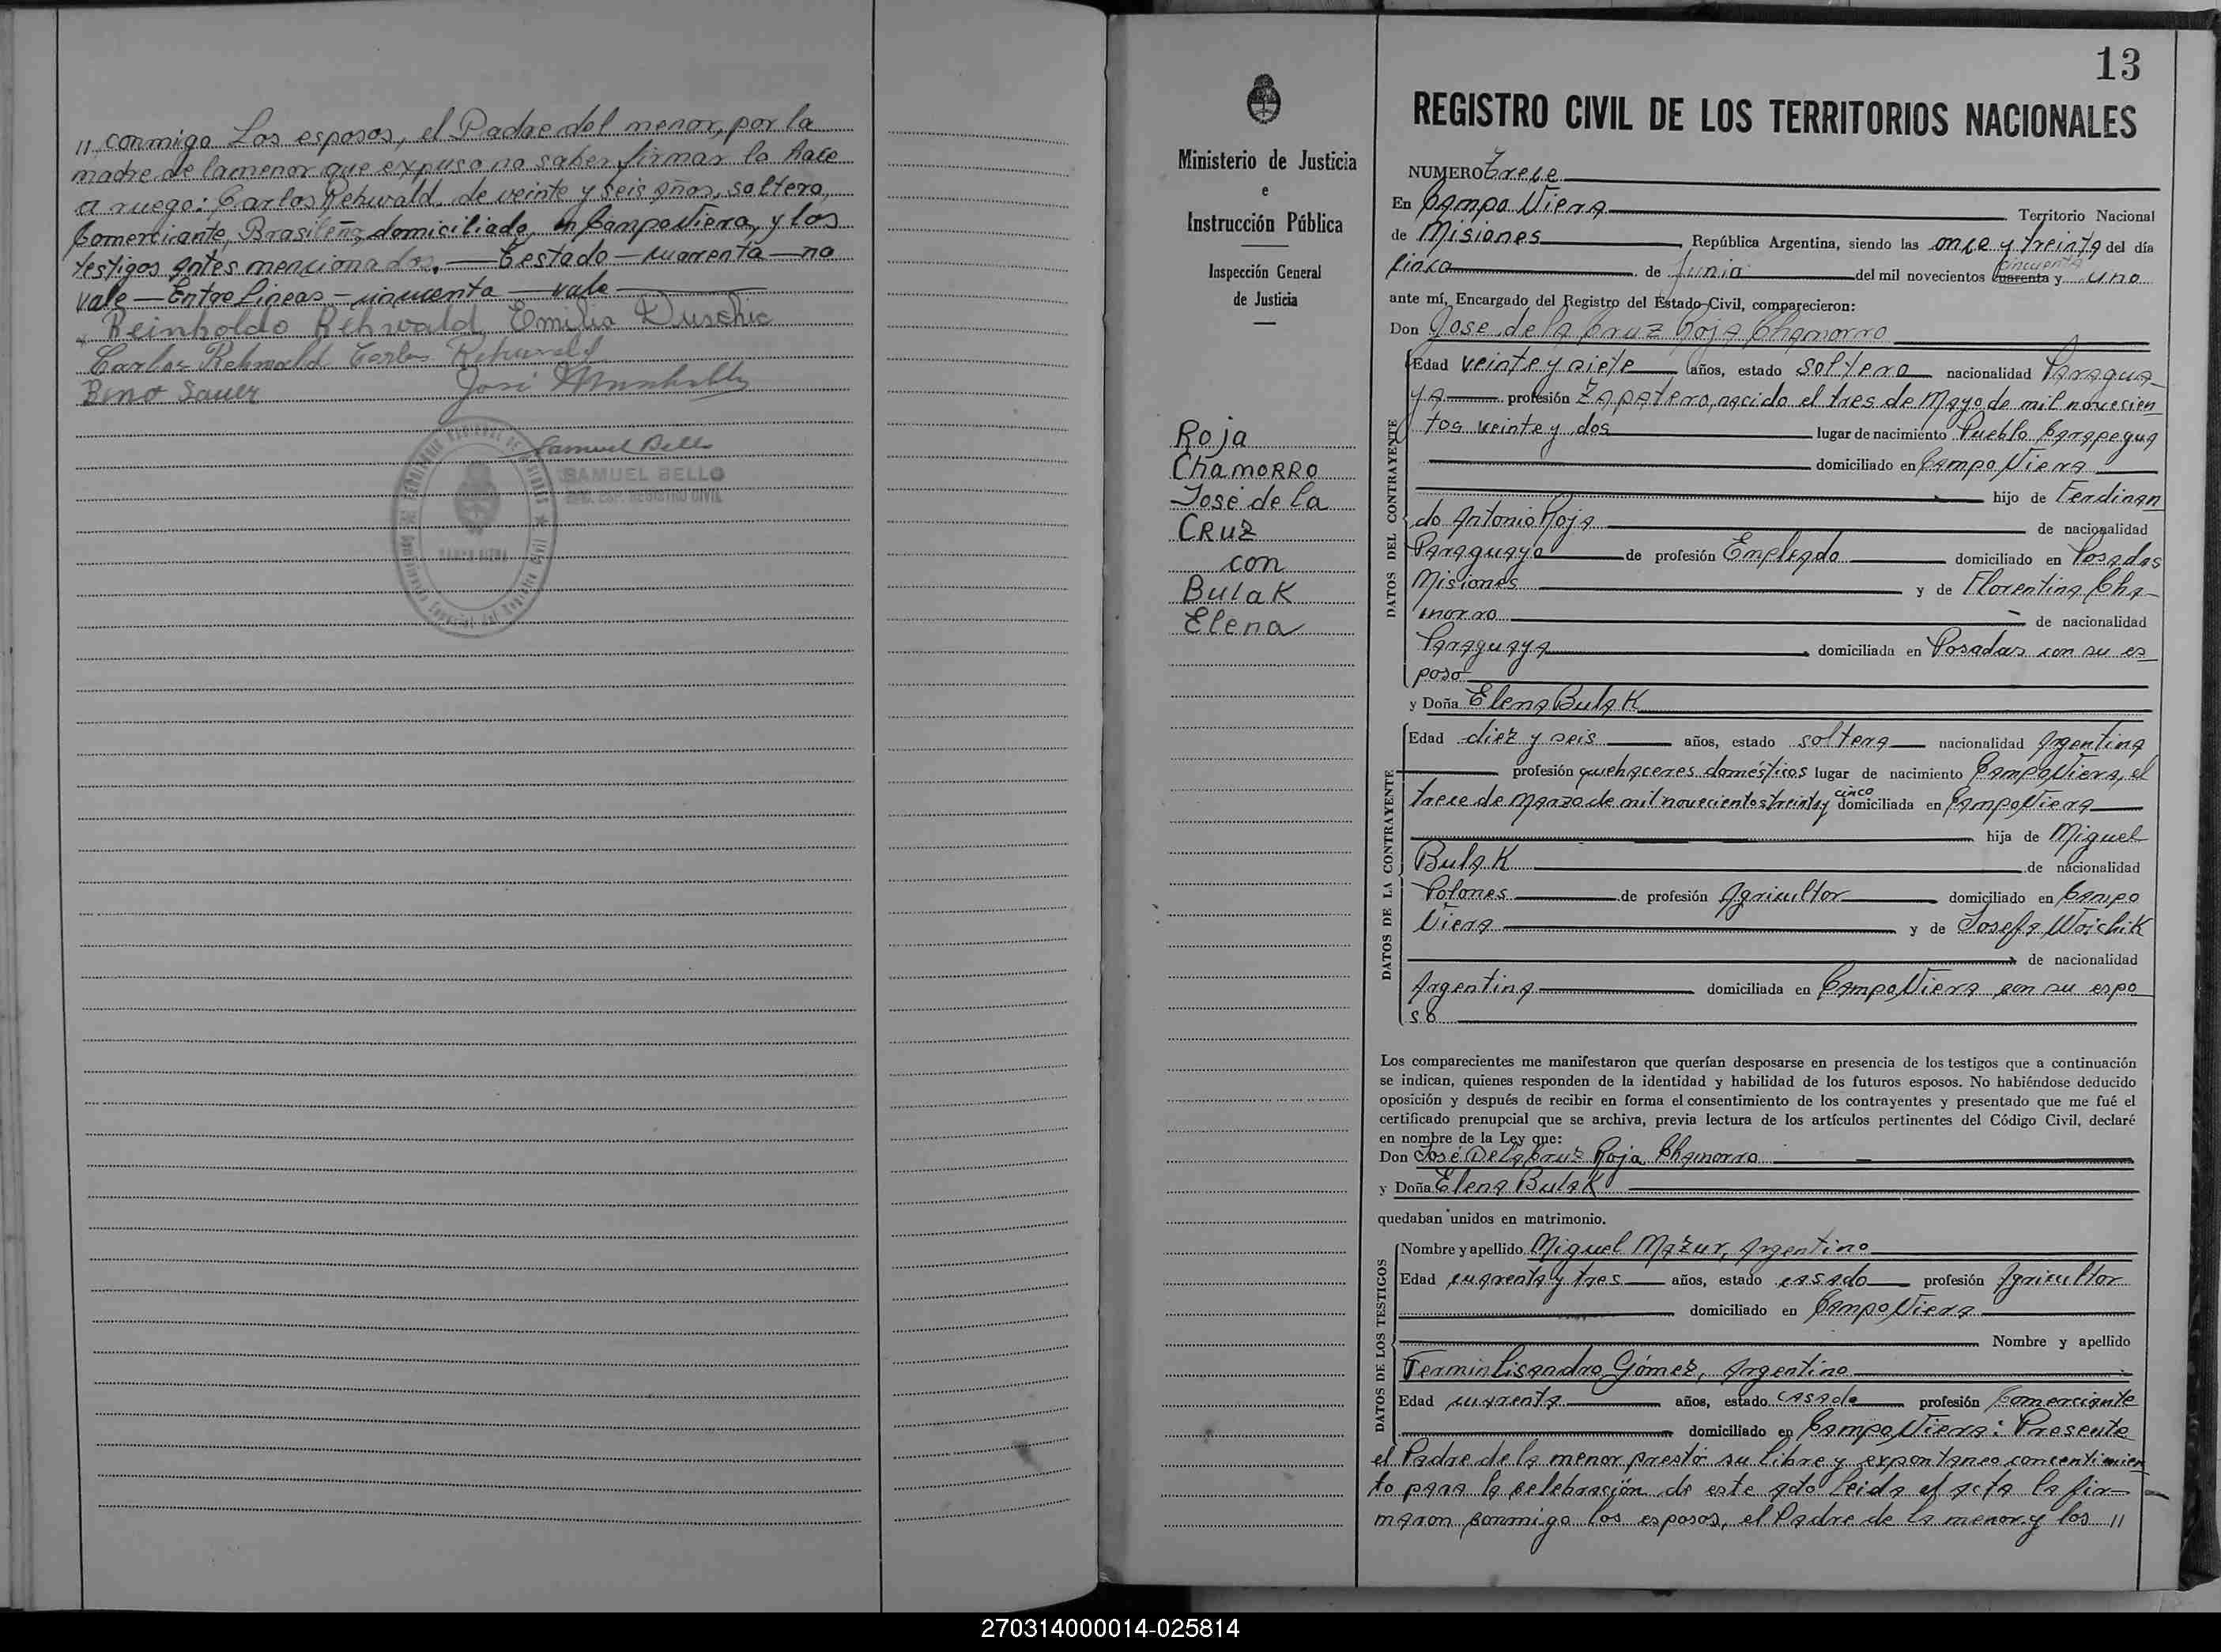 " conmigo Los esposos, el Padre del menor, por la
madre de la menor que expuso no saber firmar lo hace
a ruego: Carlos Rehwald, de veinte y seis años, soltero,
Comerciante, Brasileño, domiciliado en Campo Viera, y los
testigos antes mencionados. — Testado — cuarenta — no
vale — Entre lineas — cincuenta — vale —
Reinholdo Rehwald Emilia Duschic
Carlos Rehwald Carlos Rehwald
Beno Sauer José
Samuel Bello
SAMUEL BELLO
REGISTRO CIVIL
13
Ministerio de Justicia
e
Instrucción Pública
Inspección General
de Justicia
Roja
Chamorro
José de la
Cruz
con
Bulak
Elena
REGISTRO CIVIL DE LOS TERRITORIOS NACIONALES
NUMERO Trece
En Campo Viera Territorio Nacional
de Misiones, República Argentina, siendo las once y treinta del día
cinco de Junio del mil novecientos cuarenta cincuenta y uno
ante mí, Encargado del Registro del Estado Civil, comparecieron:
Don José de la Cruz Roja Chamorro
Edad veinte y siete años, estado soltero nacionalidad Paragua-
ya profesión Zapatero, nacido el tres de Mayo de mil novecien
tos veinte y dos lugar de nacimiento Pueblo Carapegua
domiciliado en Campo Viera
hijo de Ferdinan
do Antonio Roja de nacionalidad
Paraguayo de profesión Empleado domiciliado en Posadas
Misiones y de Florentina Cha-
morro de nacionalidad
Paraguaya domiciliada en Posadas con su es
poso
y Doña Elena Bulak
Edad diez y seis años, estado soltera nacionalidad Argentina
profesión quehaceres domésticos lugar de nacimiento Campo Viera, el
trece de Marzo de mil novecientos treinta y cinco domiciliada en Campo Viera
hija de Miguel
Bulak de nacionalidad
Polones de profesión Agricultor domiciliado en Campo
Viera y de Josefa Woichik
de nacionalidad
Argentina domiciliada en Campo Viera con su espo
so
DATOS DEL CONTRAYENTE
DATOS DE LA CONTRAYENTE
Los comparecientes me manifestaron que querían desposarse en presencia de los testigos que a continuación
se indican, quienes responden de la identidad y habilidad de los futuros esposos. No habiéndose deducido
oposición y después de recibir en forma el consentimiento de los contrayentes y presentado que me fué el
certificado prenupcial que se archiva, previa lectura de los artículos pertinentes del Código Civil, declaré
en nombre de la Ley que:
Don José De la Cruz Roja Chamorro
y Doña Elena Bulak
quedaban unidos en matrimonio.
DATOS DE LOS TESTIGOS
Nombre y apellido Miguel Mazur, Argentino
Edad cuarenta y tres años, estado casado profesión Agricultor
domiciliado en Campo Viera
Nombre y apellido
Fermin Lisandro Gómez, Argentino
Edad cuarenta años, estado casado profesión Comerciante
domiciliado en Campo Viera: Presente
el Padre de la menor prestó su libre y expontaneo concentimien
to para la celebración de este acto leida el acta la fir—
maron conmigo los esposos, el Padre de la menor y los "
270314000014-025814